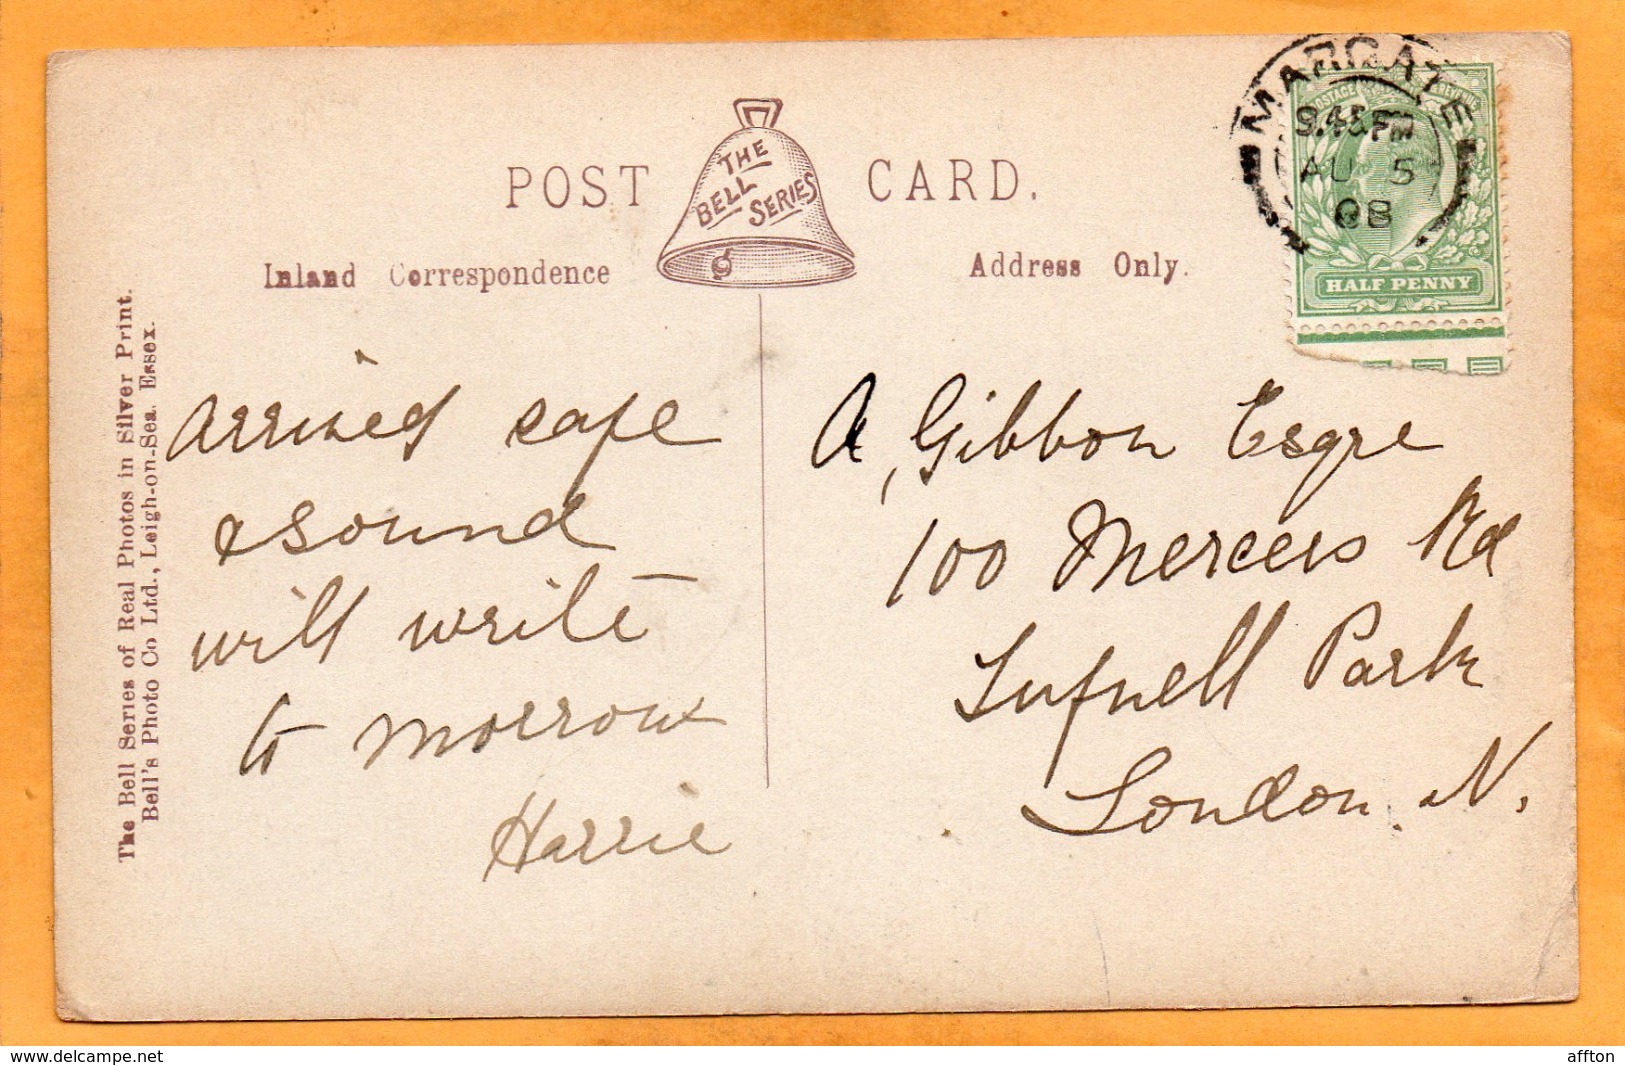 POST CARD.
THE
BELL
SERIES
Inland Correspondence
Address Only.
The Bell Series of Real Photos in Silver Print.
Bell's Photo Co Ltd., Leigh-on-Sea. Essex.
MARGATE
AU 5
08
POSTAGE REVENUE
HALF PENNY
arrived safe
& sound
will write
to morrow
Harrie
A, Gibbon Esqre
100 Mercers Rd
Tufnell Park
London. N.
Visit more on picclick.com